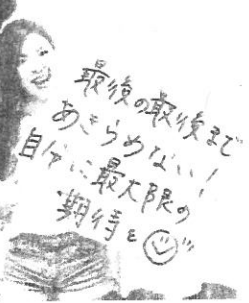 最後の最後まで
あきらめない!
自分に最大限の
期待を